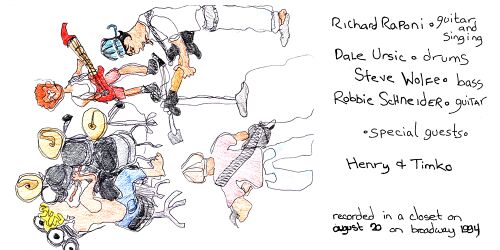 Richard Raponi • guitar
and
singing
Dale Ursic • drums
Steve Wolfe • bass
Robbie Schneider • guitar
•special guests•
Henry & Timko
recorded in a closet on
august 20 on broadway 1994